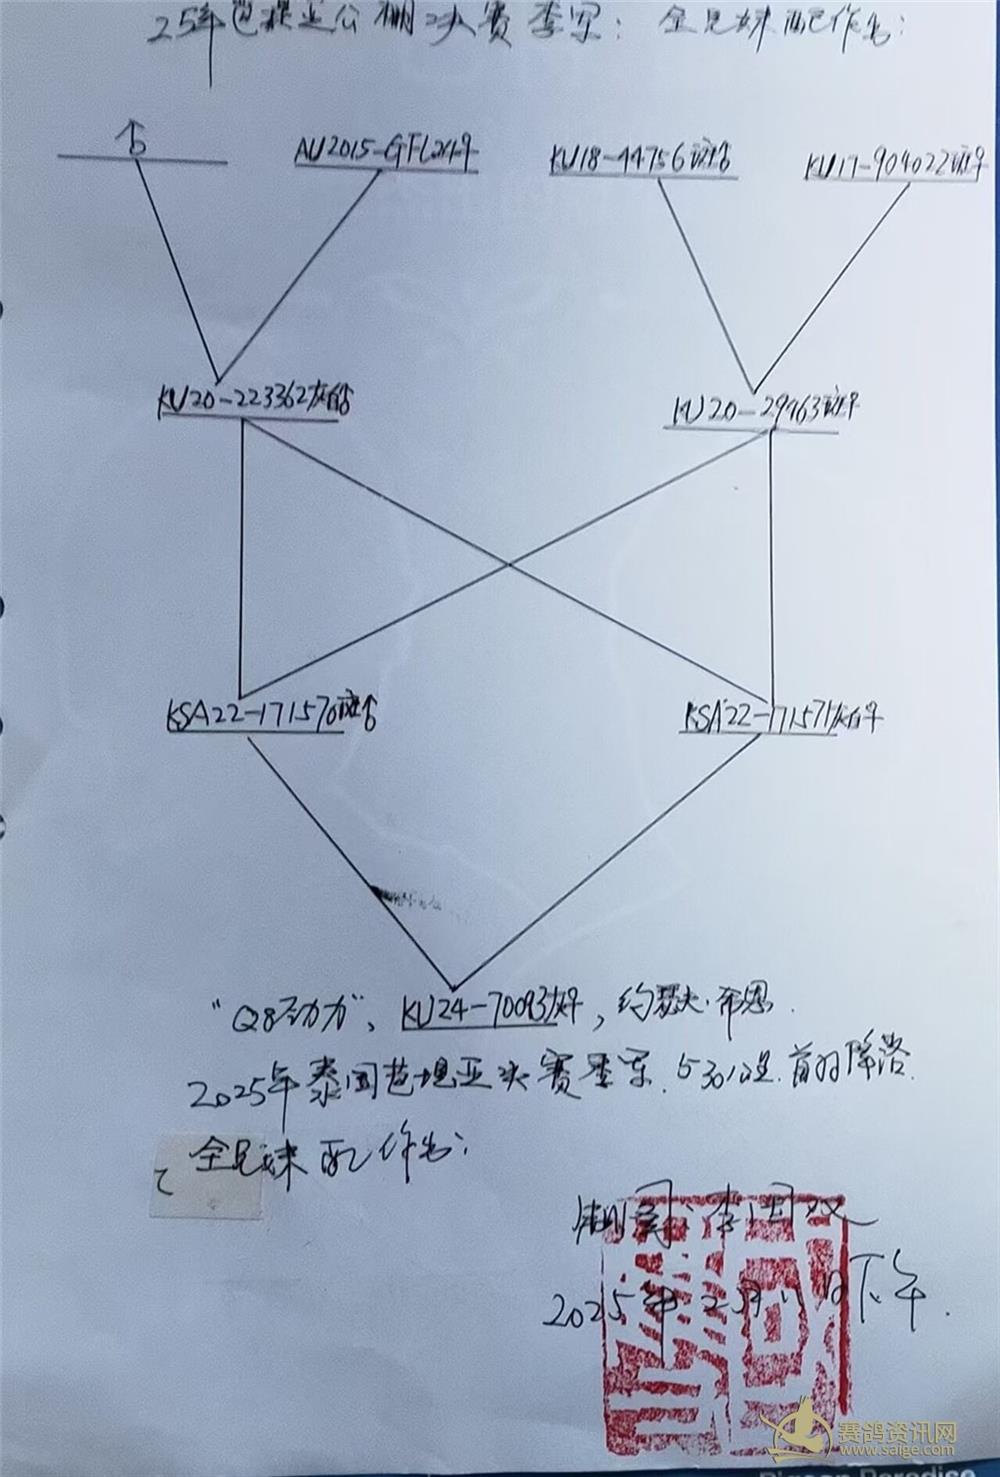 25年芭提亚公棚决赛季军：全兄妹配作出：
AU2015-GFL24♀
KU18-44756斑♂
KU17-904022斑♀
KU20-223362灰白♂
KU20-29963斑♀
KSA22-171570斑♂
KSA22-171571灰白♀
"Q8动力"、KU24-70093灰♀，约瑟夫·希恩.
2025年泰国芭堤亚决赛季军.530公里.首羽降落.
全兄妹配作出：
2025年2月 日下午.
赛鸽资讯网
www.saige.com